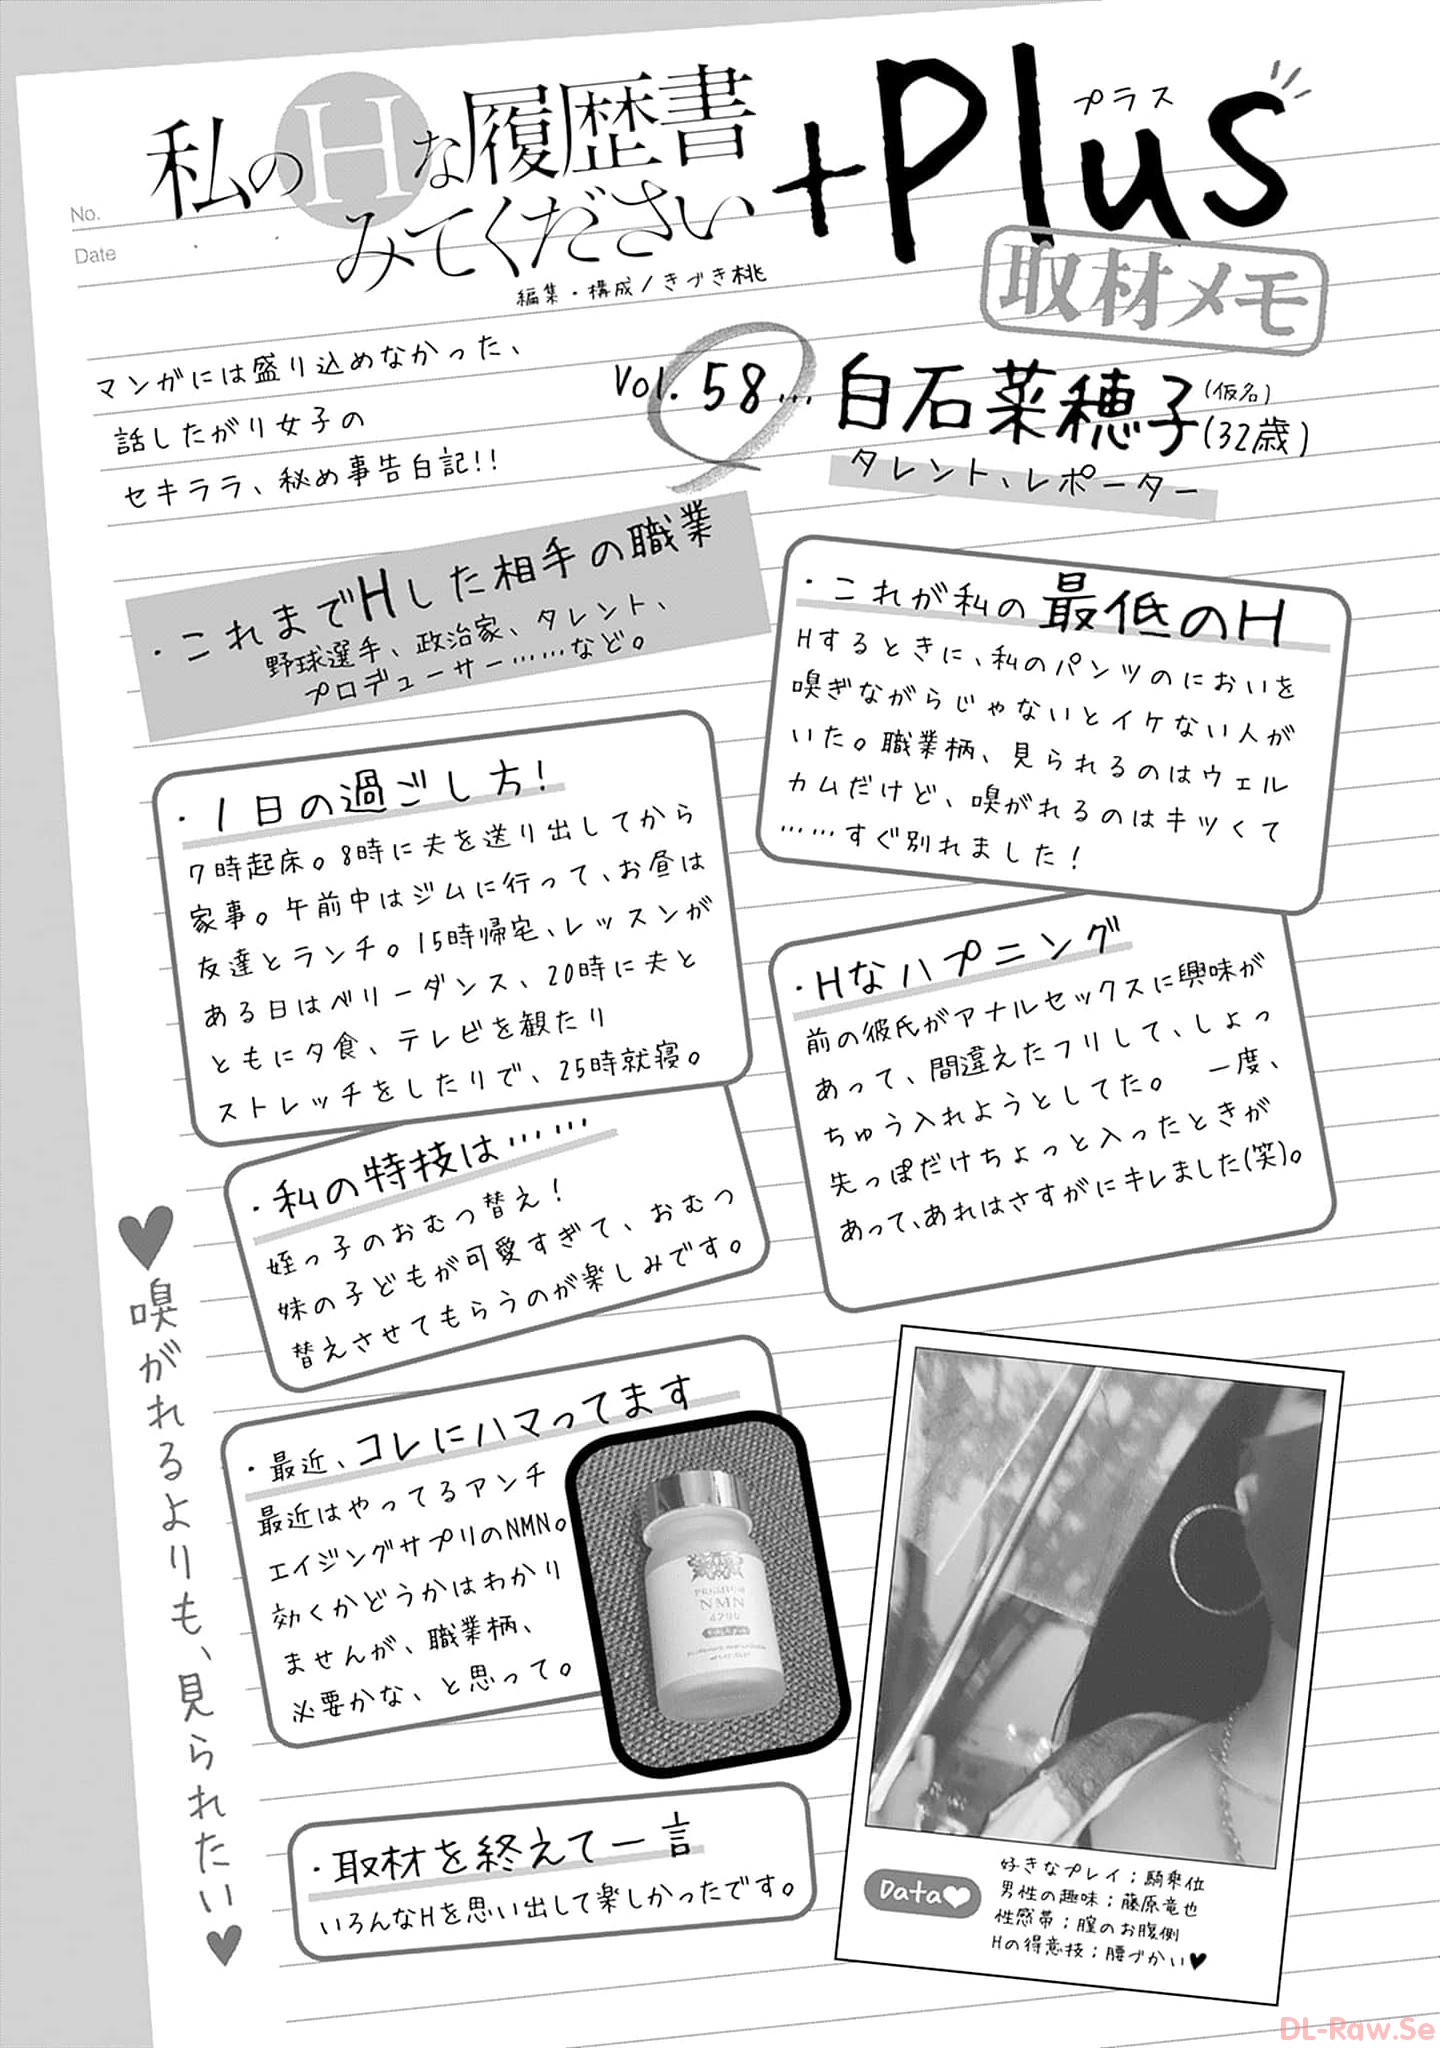 No.
Date
私のHな履歴書
みてください
+Plus
プラス
編集・構成/きづき桃
取材メモ
マンガには盛り込めなかった、
話したがり女子の
セキララ、秘め事告白記!!
Vol. 58… 白石菜穂子(仮名)(32歳)
タレント、レポーター
・これまでHした相手の職業
野球選手、政治家、タレント、
プロデューサー……など。
・これが私の最低のH
Hするときに、私のパンツのにおいを
嗅ぎながらじゃないとイケない人が
いた。職業柄、見られるのはウェル
カムだけど、嗅がれるのはキツくて
……すぐ別れました!
・1日の過ごし方!
7時起床。8時に夫を送り出してから
家事。午前中はジムに行って、お昼は
友達とランチ。15時帰宅、レッスンが
ある日はベリーダンス、20時に夫と
ともに夕食、テレビを観たり
ストレッチをしたりで、25時就寝。
・Hなハプニング
前の彼氏がアナルセックスに興味が
あって、間違えたフリして、しょっ
ちゅう入れようとしてた。 一度、
先っぽだけちょっと入ったときが
あって、あれはさすがにキレました(笑)。
・私の特技は……
姪っ子のおむつ替え!
妹の子どもが可愛すぎて、おむつ
替えさせてもらうのが楽しみです。
・最近、コレにハマってます
最近はやってるアンチ
エイジングサプリのNMN。
効くかどうかはわかり
ませんが、職業柄、
必要かな、と思って。
PREMIUM
NMN
・取材を終えて一言
いろんなHを思い出して楽しかったです。
♥嗅がれるよりも、見られたい♥
Data♥
好きなプレイ;騎乗位
男性の趣味;藤原竜也
性感帯;膣のお腹側
Hの得意技;腰づかい♥
DL-Raw.Se